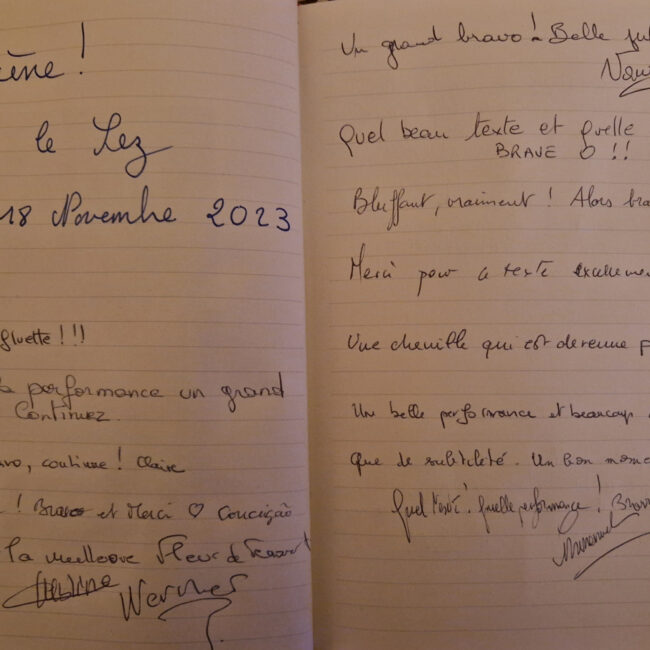 ène !
le Lez
18 Novembre 2023
fluette !!!
performance un grand
Continuez.
continue ! Claire
! Bravo et Merci ♡ Conceição
la meilleure Fleur de
Werner
Un grand bravo ! Belle
Quel beau texte et quelle
BRAVE O !!
Bluffant, vraiment ! Alors
Merci pour ce texte
Une chenille qui est devenue
Une belle performance et beaucoup
que de subtilité. Un bon
Quel texte ! Quelle performance !